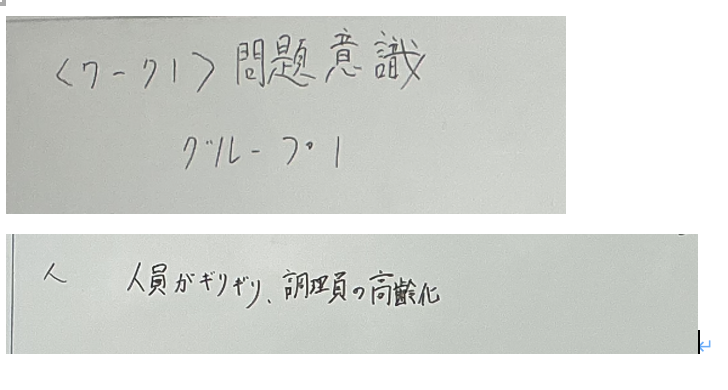 〈ワーク1〉問題意識
グループ1
人 人員がギリギリ、調理員の高齢化